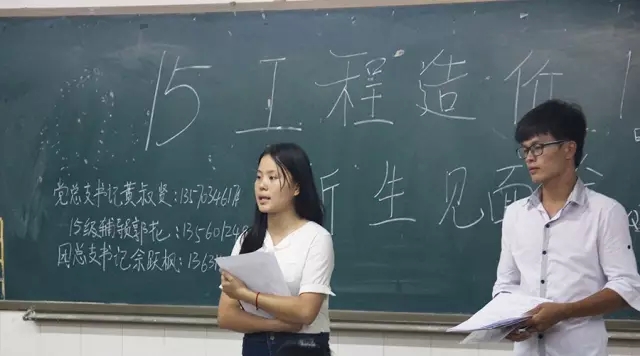 15工程造价1
新生见面会
党总支书记黄叔贤：1357034617
15级辅导员郭花：135601248
团总支书记余跃枫：1363